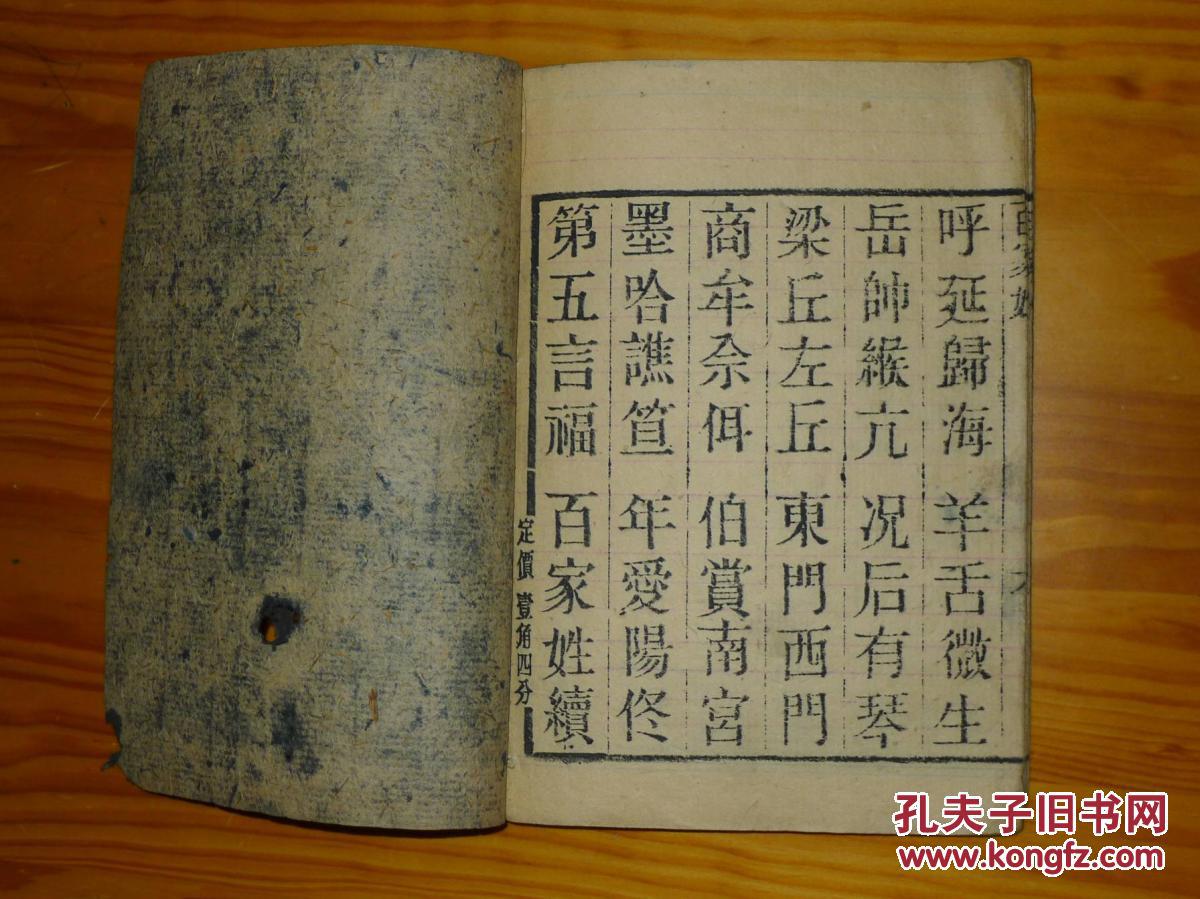 呼延歸海　羊舌微生
岳帥緱亢　况后有琴
梁丘左丘　東門西門
商牟佘佴　伯賞南宮
墨哈譙笪　年愛陽佟
第五言福　百家姓續
定價 壹角四分
孔夫子旧书网
www.kongfz.com